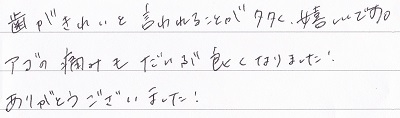 歯がきれいと言われることが多く、嬉しいです。
アゴの痛みもだいぶ良くなりました！
ありがとうございました！